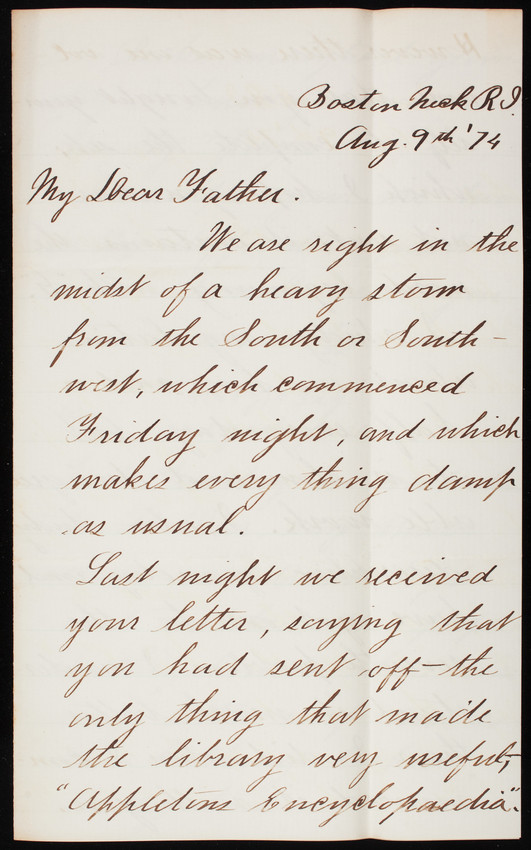 Boston Neck R.I.
Aug. 9th '74
My Dear Father.
We are right in the
midst of a heavy storm
from the South or South-
west, which commenced
Friday night, and which
makes every thing damp
as usual.
Last night we received
your letter, saying that
you had sent off the
only thing that made
the library very useful,
"Appletons Encyclopaedia".